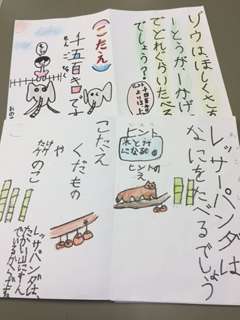 ゾウは、ほしくさを
一とうが一かげ
でどれくらいたべる
でしょうか?
(こたえ)
千五百キロです
レッサーパンダは
なにをたべるでしょう
ヒント
ヒントの
え
こたえ
くだもの
や
竹のこ
レッサーパンダは、